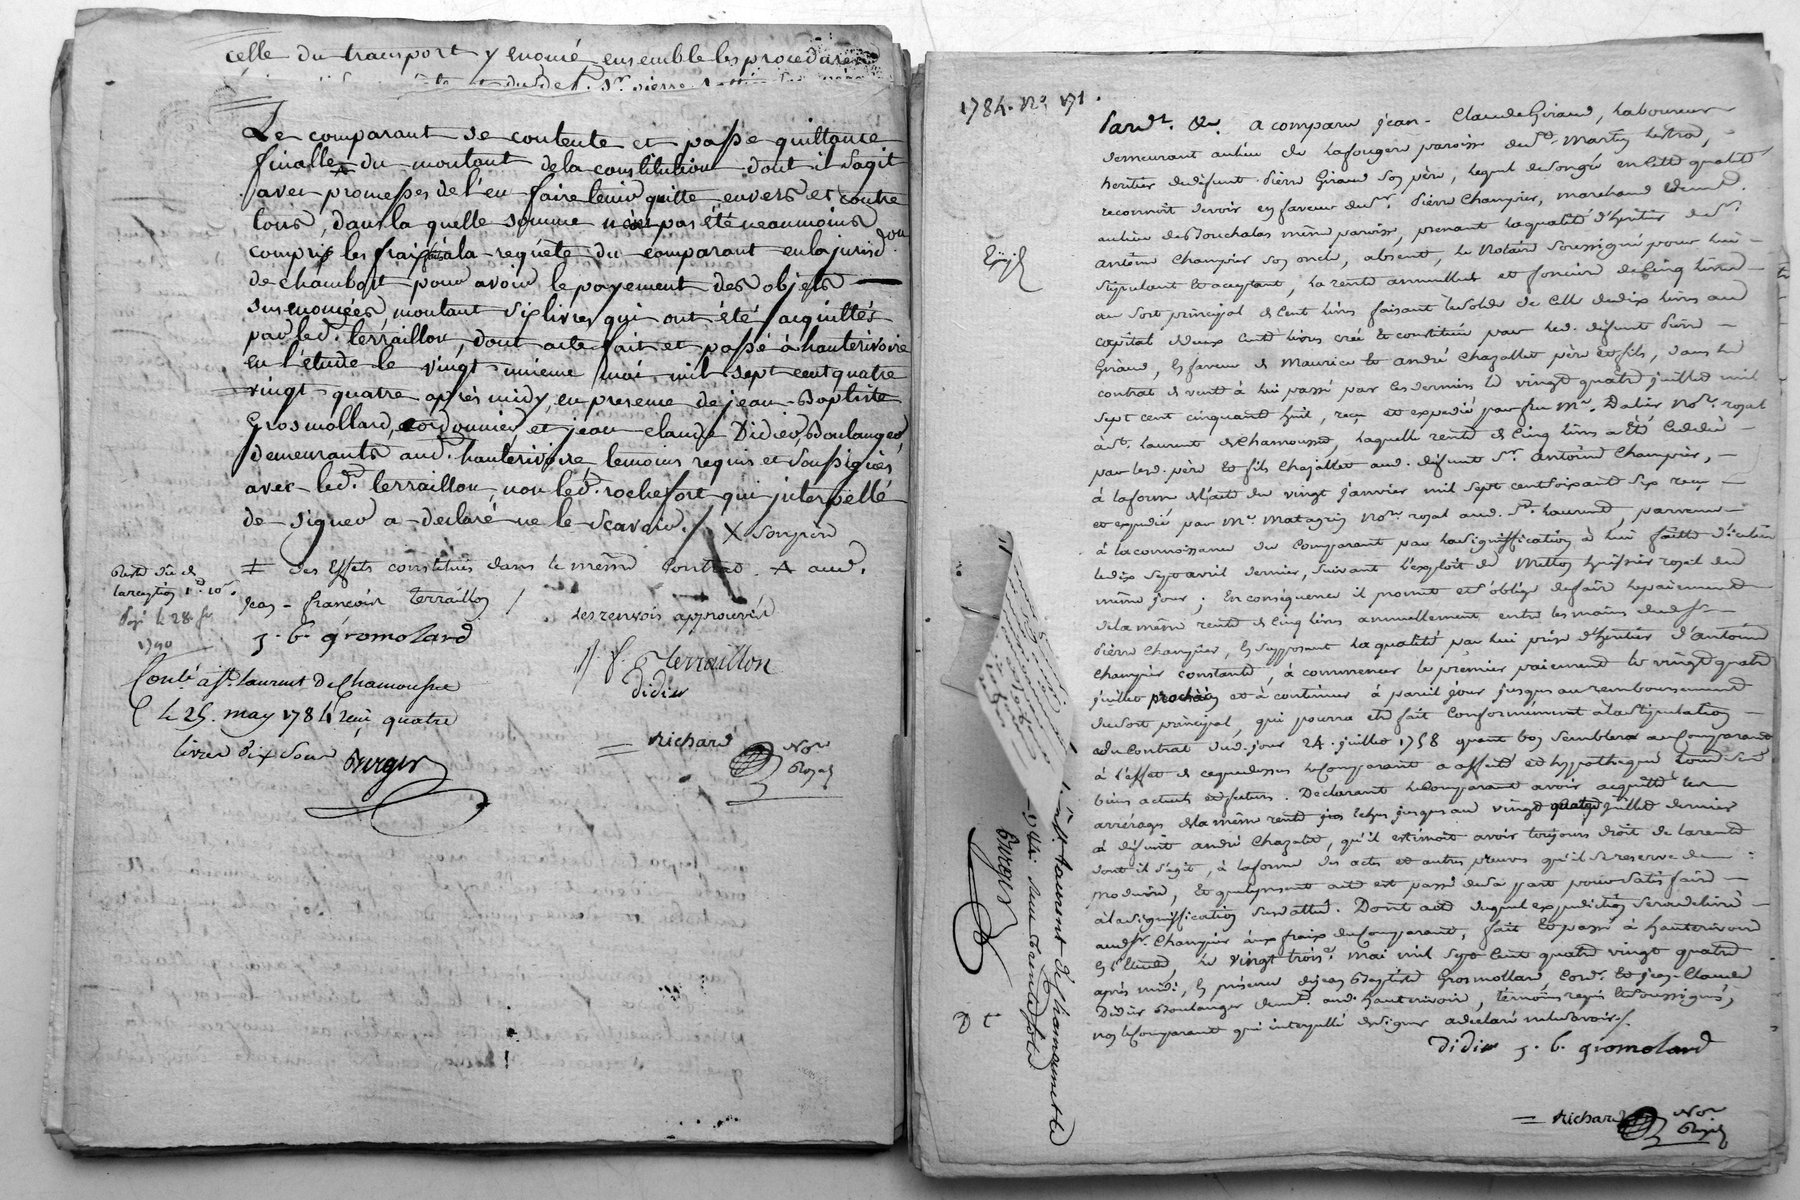 celle du transport y enoncé, ensemble les procedures
Le comparant se contente et passe quittance
finalle du montant de la constitution dont il s'agit
avec promesses de l'en faire tenir quitte envers et contre
tous, dans la quelle somme n'ont pas été neanmoins
compris les frais faits à la requête du comparant en la jurisdon
de chambost pour avoir le payement des objets
susenoncées, montant six livres qui ont été acquittés
par led. terraillon, dont acte fait et passé à hauterivoire
en l'étude le vingt unieme mai mil sept cent quatre
vingt quatre après midy, en presence de jean-Baptiste
Grosmollard, cordonnier, et jean claude Didier, Boulanger,
demeurants aud. hauterivoire, temoins requis et soussignés
avec led. terraillon, non led. rochefort qui interpellé
de signer a declaré ne le scavoir./ X son père
# des effets constitués dans le même contrat. A aud.
jean-françois terraillon
les renvois approuvés
j. b. gromolard
j f terraillon
didier
1790
Conlé à st. laurent De Chamousset
le 25. may 1784 reçu quatre
livres dix sous Burger
= Richard Nore
Royal
1784. No. 171.
Pardt. &c. a comparu jean-Claude Giraud, laboureur
demeurant au lieu de lafougere paroisse de st. Martin lestra,
heritier de defunt Pierre Giraud son père, lequel de son gré en cette qualité
reconnoit devoir en faveur de sr. Pierre Champier, marchand demt.
au lieu des Bouchalas même paroisse, prenant la qualité d'héritier de sr.
antoine Champier son oncle, absent, le Notaire soussigné pour lui
stipulant et acceptant, la rente annuelle et fonciere de cinq livres
au sort principal de cent livres faisant le solde de celle de dix livres au
capital de deux cents livres créé et constituée par led. défunt Pierre
Giraud, en faveur de Maurice et andré Chazallet père et fils, dans le
contrat de vente à lui passé par ces derniers le vingt quatre juillet mil
sept cent cinquante huit, reçu et expedié par feu Me. Dalier Nore. royal
à st. laurent de Chamousset, laquelle rente de cinq livres a été cédée
par lesd. père et fils Chazallet aud. défunt sr. antoine Champier,
à la forme de l'acte du vingt janvier mil sept cent soixante six reçu
et expedié par Me. Matagrin Nore. royal aud. st. laurent, parvenue
à la connoissance du comparant par la signiffication à lui faitte d'icelui
le dix sept avril dernier, suivant l'exploit de Mellon huissier royal dud
même jour; en conséquence il promet et s'oblige de faire le paiement
de la même rente de cinq livres annuellement entre les mains dud. sr.
Pierre Champier, en supposant la qualité par lui prise d'héritier d'antoine
Champier constante, à commencer le premier paiement le vingt quatre
juillet prochain et à continuer à pareil jour jusques au remboursement
du sort principal, qui pourra être fait conformément à la stipulation
du Contrat dud. jour 24. juillet 1758 quant bon semblera au Comparant
à l'effet de ce que dessus le Comparant a affecté et hypothequé tous ses
biens actuels et futurs. Declarant le Comparant avoir acquitté les
arrérages de la même rente jusques au vingt quatre juillet dernier
à défunt andré Chazalet, qu'il estimoit avoir toujours droit de la rente
dont il s'agit, à la forme des actes et autres preuves qu'il se reserve de
produire, et que le present acte est passé de sa part pour satisfaire
à la signiffication susdatte. Dont acte duquel expedition sera delivrée
aud. sr. Champier aux fraix du Comparant, fait et passé à hauterivoire
en l'étude, le vingt trois mai mil sept cent quatre vingt quatre
après midi, en présence de jean Baptiste Grosmollard, Cordr. et jean-Claude
Didier Boulanger demt. aud. hauterivoire, témoins requis et soussignés,
non le Comparant qui interpellé de signer a déclaré ne le savoir./.
didier j. b. gromolard
= Richard Nore
Royal
à st. laurent de Chamousset le
1784. reçu
Burger